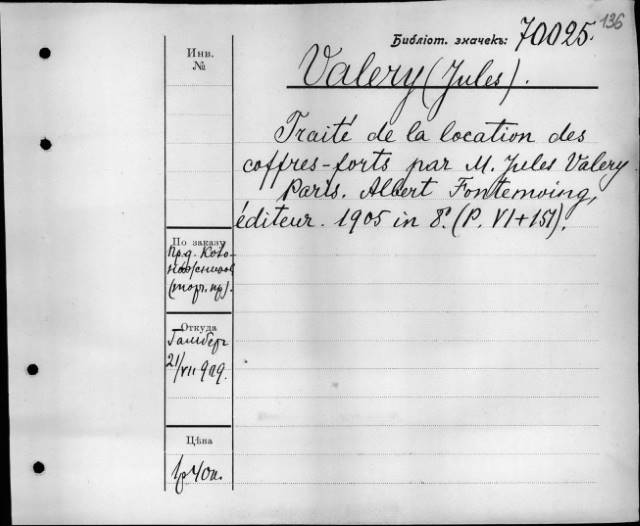 136
Библіот. значекъ: 70025.
Инв.
№
Valery (Jules).
Traité de la location des
coffres-forts par M. Jules Valery
Paris. Albert Fontemoing,
éditeur. 1905 in 8°. (P. VI+151).
По заказу
(торг. пр).
Откуда
Гамберг
21/VII 909.
Цѣна
1р 40к.